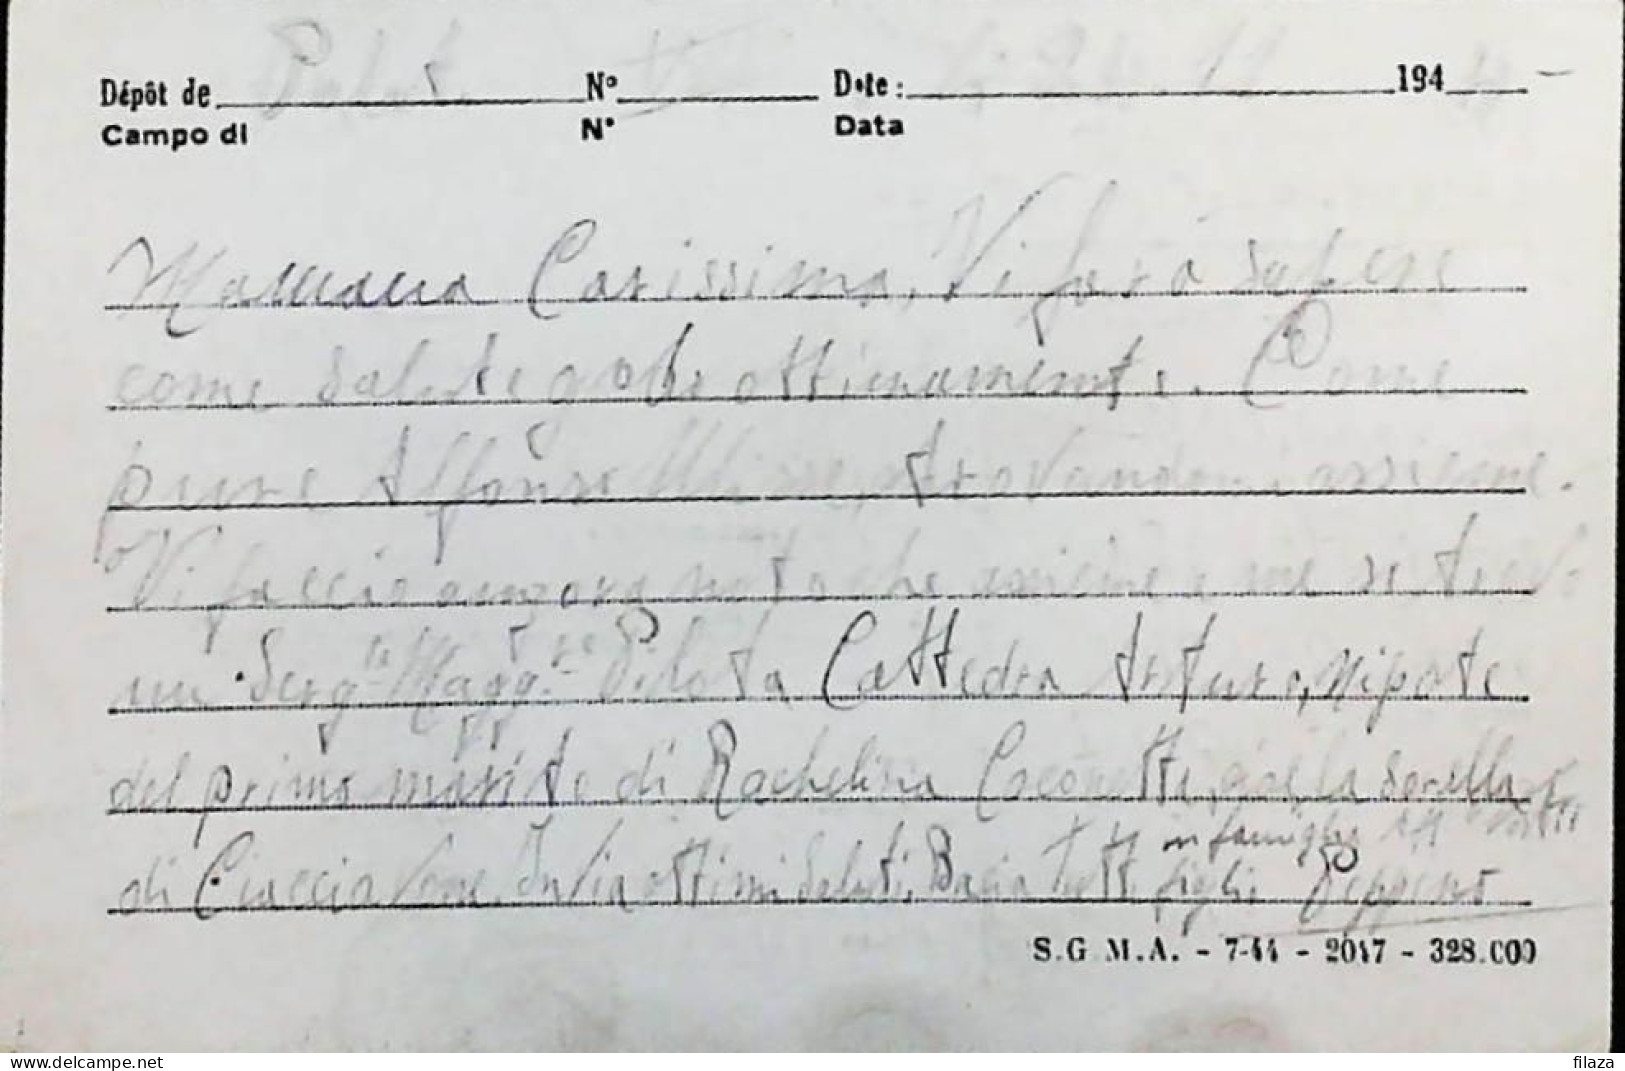 Dépôt de N° Date : 194
Campo di N° Data
Mamma Carissima, Vi farò sapere
come salute godo ottimamente. Come
pure Alfonso trovandomi assieme.
Vi faccio anzora noto che assieme a me si trova
un Serg.te Magg.re Pilota Cattedra Arturo, nipote
del primo marito di Rachelina Coconetti, cioè la sorella
di Ciaccia Invia ottimi saluti, Bacia tutti in famiglia
figli Peppino
S.G.M.A. - 7-44 - 2047 - 328.000
filaza